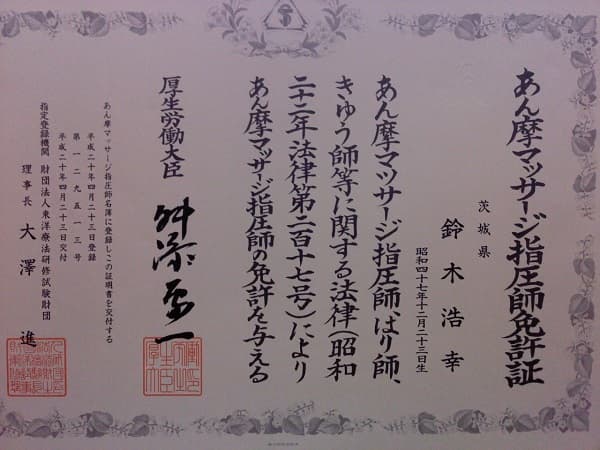 あん摩マッサージ指圧師免許証
茨城県
鈴木浩幸
昭和四十七年十二月二十三日生
あん摩マッサージ指圧師、はり師、
きゆう師等に関する法律（昭和
二十二年法律第二百十七号）により
あん摩マッサージ指圧師の免許を与える
厚生労働大臣
舛添要一
あん摩マッサージ指圧師名簿に登録しこの証明書を交付する
平成二十年四月二十三日登録
第一二九五一三号
平成二十年四月二十三日交付
指定登録機関 財団法人東洋療法研修試験財団
理事長 大澤 進